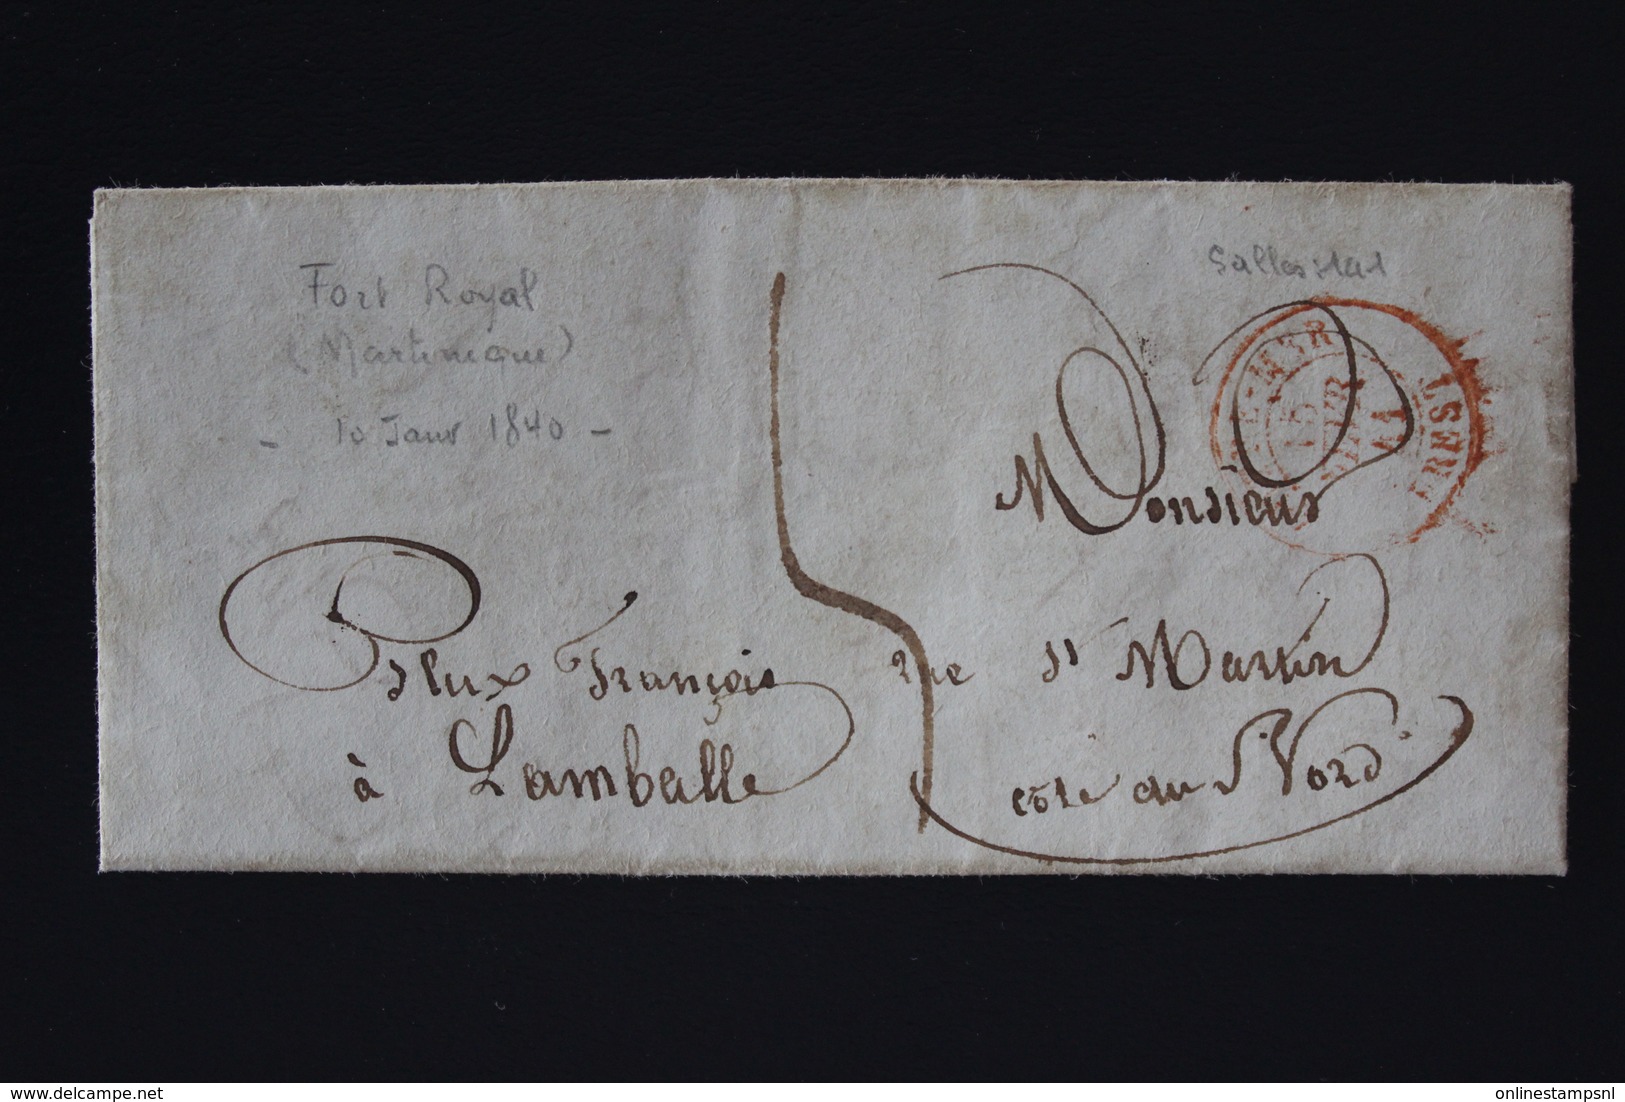 Fort Royal
(Martinique)
- 10 Janv 1840 -
Salles
Monsieur
François rue St Martin
à Lamballe côte du Nord
BREST
onlinestampsnl